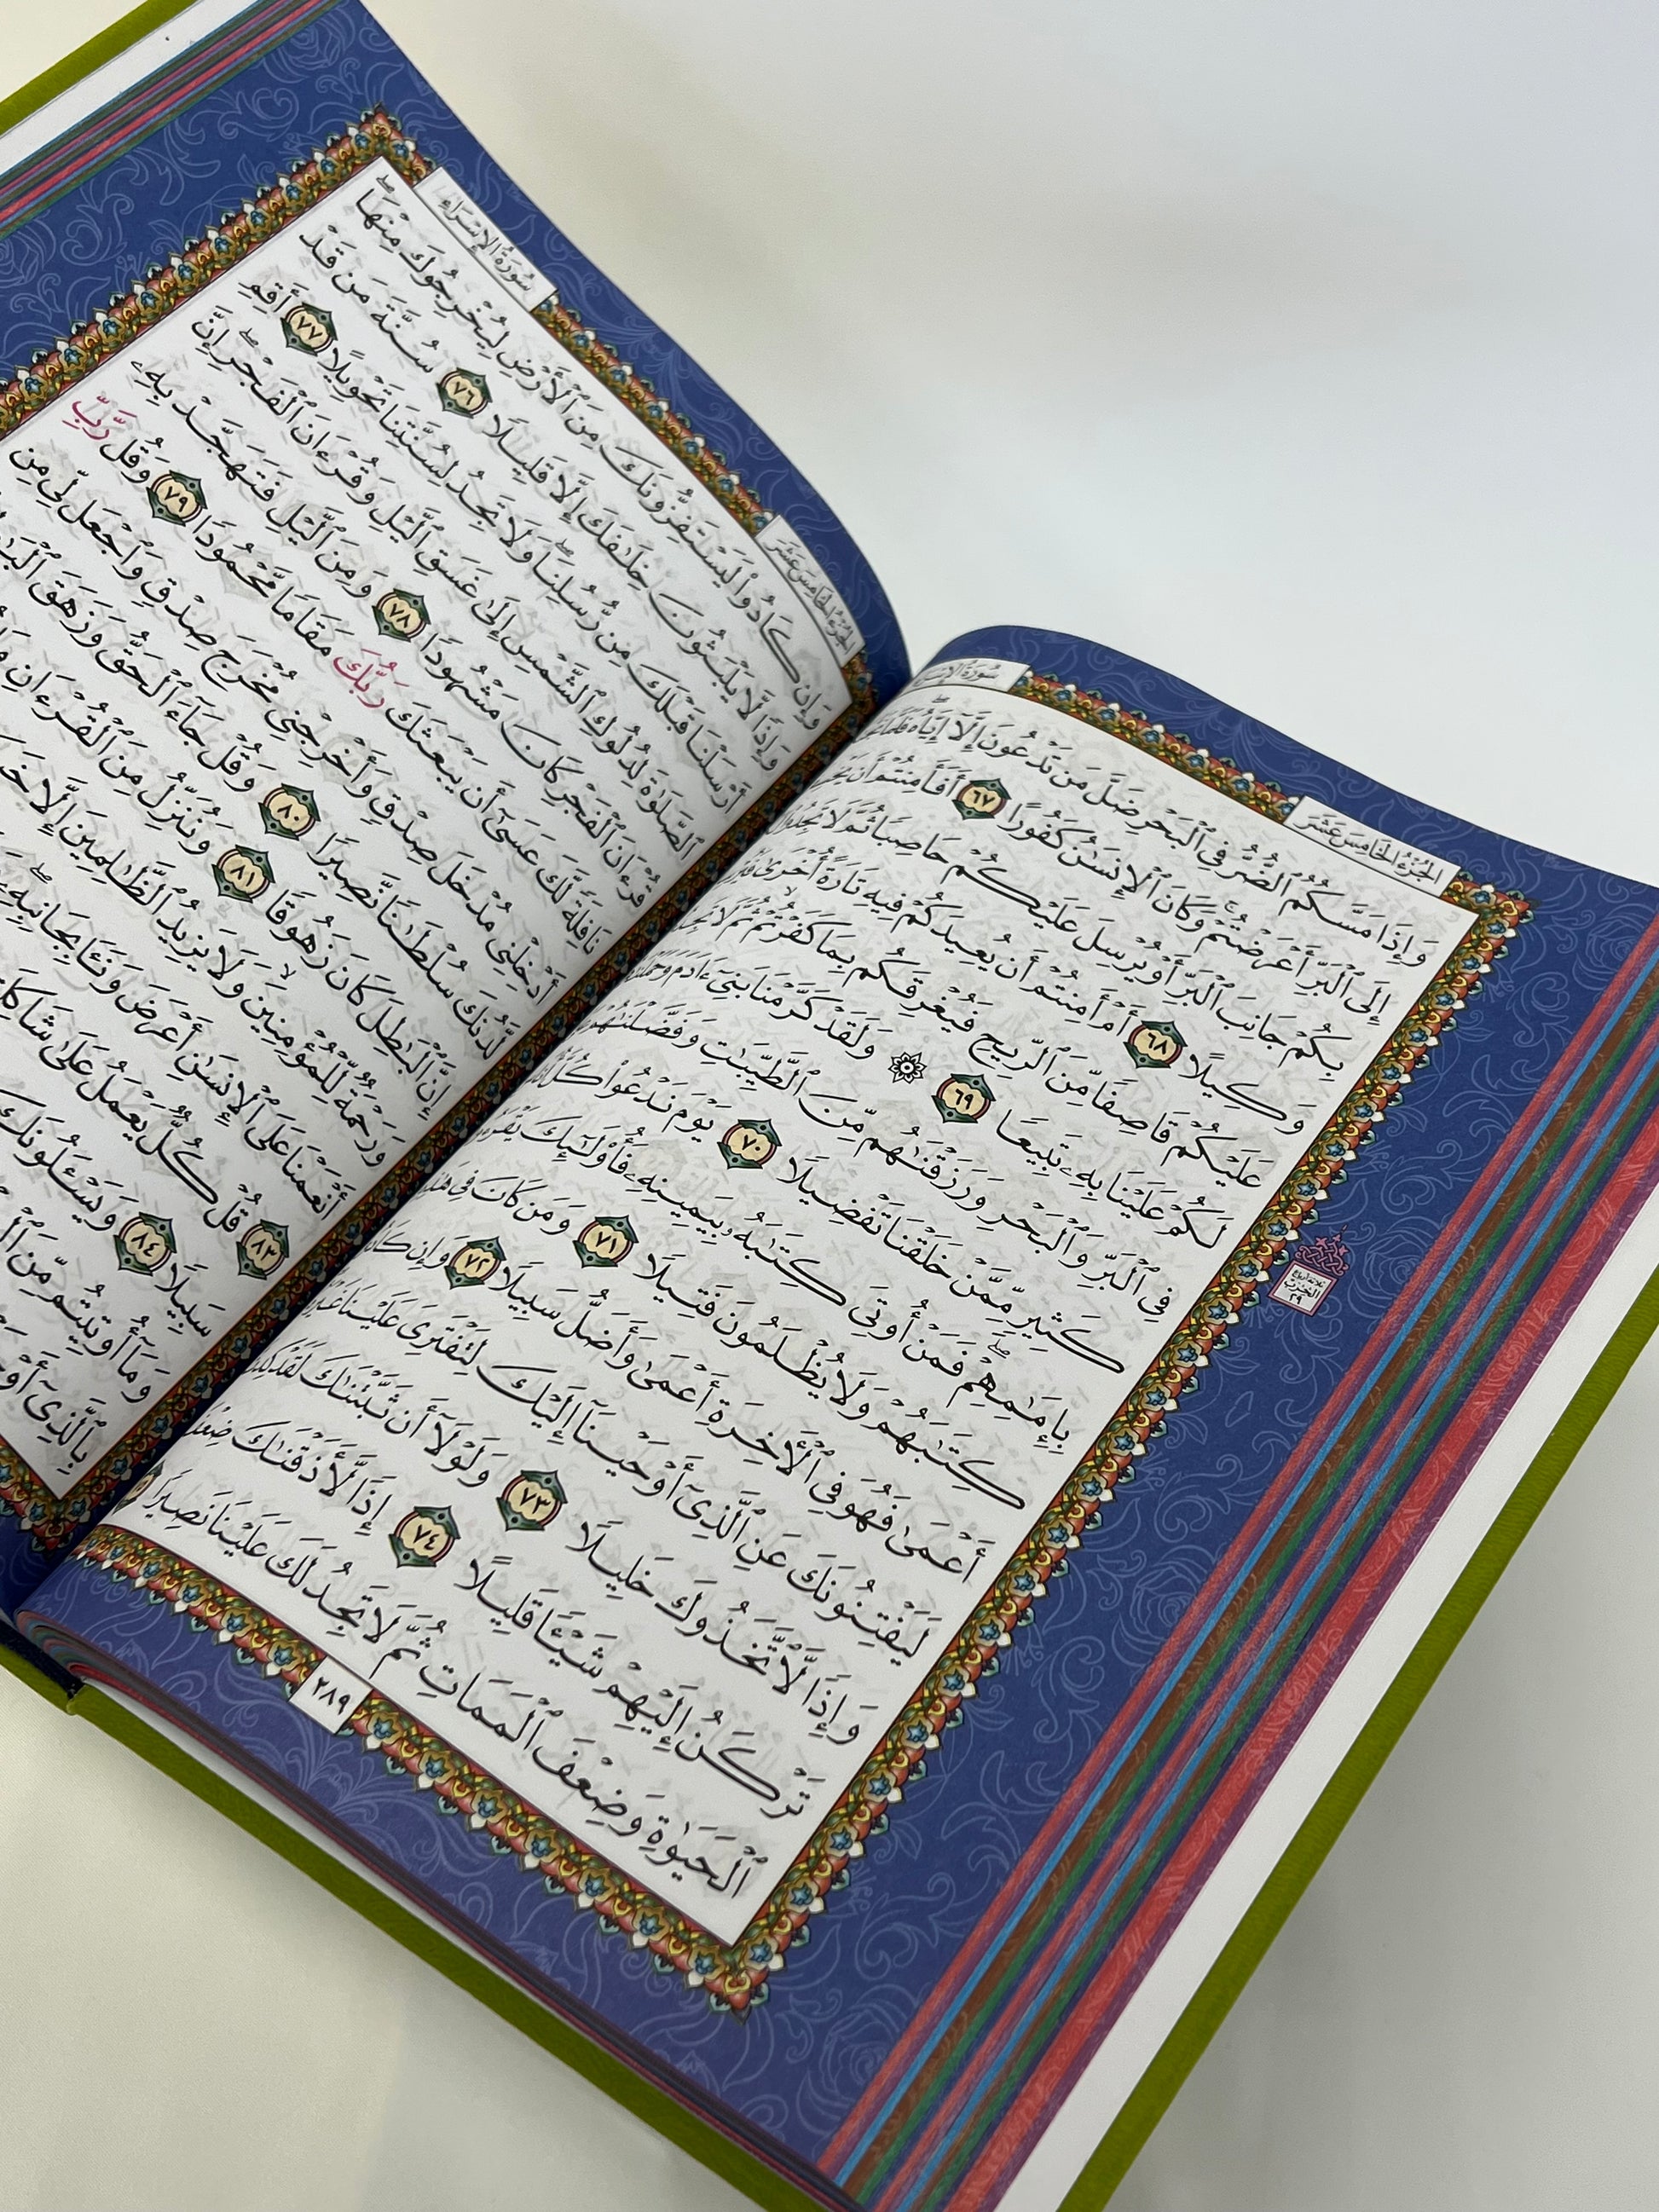 سُورَةُ الإِسْرَاءِ
الجُزْءُ الخَامِسَ عَشَرَ
وَإِذَا مَسَّكُمُ ٱلضُّرُّ فِي ٱلْبَحْرِ ضَلَّ مَن تَدْعُونَ إِلَّآ إِيَّاهُۖ فَلَمَّا
إِلَى ٱلْبَرِّ أَعْرَضْتُمْۚ وَكَانَ ٱلْإِنسَٰنُ كَفُورًا ٦٧ أَفَأَمِنتُمْ أَن
بِكُمْ جَانِبَ ٱلْبَرِّ أَوْ يُرْسِلَ عَلَيْكُمْ حَاصِبًا ثُمَّ لَا تَجِدُوا۟
وَكِيلًا ٦٨ أَمْ أَمِنتُمْ أَن يُعِيدَكُمْ فِيهِ تَارَةً أُخْرَىٰ
عَلَيْكُمْ قَاصِفًا مِّنَ ٱلرِّيحِ فَيُغْرِقَكُم بِمَا كَفَرْتُمْۙ ثُمَّ لَا
لَكُمْ عَلَيْنَا بِهِۦ تَبِيعًا ٦٩ ۞ وَلَقَدْ كَرَّمْنَا بَنِيٓ ءَادَمَ
فِي ٱلْبَرِّ وَٱلْبَحْرِ وَرَزَقْنَٰهُم مِّنَ ٱلطَّيِّبَٰتِ وَفَضَّلْنَٰهُمْ
كَثِيرٍ مِّمَّنْ خَلَقْنَا تَفْضِيلًا ٧٠ يَوْمَ نَدْعُوا۟ كُلَّ
بِإِمَٰمِهِمْۖ فَمَنْ أُوتِيَ كِتَٰبَهُۥ بِيَمِينِهِۦ فَأُو۟لَٰٓئِكَ
كِتَٰبَهُمْ وَلَا يُظْلَمُونَ فَتِيلًا ٧١ وَمَن كَانَ فِي
أَعْمَىٰ فَهُوَ فِي ٱلْأَخِرَةِ أَعْمَىٰ وَأَضَلُّ سَبِيلًا ٧٢ وَإِن
لَيَفْتِنُونَكَ عَنِ ٱلَّذِيٓ أَوْحَيْنَآ إِلَيْكَ لِتَفْتَرِيَ عَلَيْنَا
وَإِذًا لَّٱتَّخَذُوكَ خَلِيلًا ٧٣ وَلَوْلَآ أَن ثَبَّتْنَٰكَ لَقَدْ
تَرْكَنُ إِلَيْهِمْ شَيْـًٔا قَلِيلًا ٧٤ إِذًا لَّأَذَقْنَٰكَ ضِعْفَ
ٱلْحَيَوٰةِ وَضِعْفَ ٱلْمَمَاتِ ثُمَّ لَا تَجِدُ لَكَ عَلَيْنَا نَصِيرًا
ثلاثة أرباع
الحزب
٢٩
٢٨٩
سُورَةُ الإِسْرَاءِ
الجُزْءُ الخَامِسَ عَشَرَ
وَإِن كَادُوا۟ لَيَسْتَفِزُّونَكَ مِنَ ٱلْأَرْضِ لِيُخْرِجُوكَ مِنْهَاۖ
وَإِذًا لَّا يَلْبَثُونَ خِلَٰفَكَ إِلَّا قَلِيلًا ٧٦ سُنَّةَ مَن قَدْ
أَرْسَلْنَا قَبْلَكَ مِن رُّسُلِنَاۖ وَلَا تَجِدُ لِسُنَّتِنَا تَحْوِيلًا ٧٧ أَقِمِ
ٱلصَّلَوٰةَ لِدُلُوكِ ٱلشَّمْسِ إِلَىٰ غَسَقِ ٱلَّيْلِ وَقُرْءَانَ ٱلْفَجْرِۖ إِنَّ
قُرْءَانَ ٱلْفَجْرِ كَانَ مَشْهُودًا ٧٨ وَمِنَ ٱلَّيْلِ فَتَهَجَّدْ بِهِۦ
نَافِلَةً لَّكَ عَسَىٰٓ أَن يَبْعَثَكَ رَبُّكَ مَقَامًا مَّحْمُودًا ٧٩ وَقُل رَّبِّ
أَدْخِلْنِي مُدْخَلَ صِدْقٍ وَأَخْرِجْنِي مُخْرَجَ صِدْقٍ وَٱجْعَل لِّي مِن
لَّدُنكَ سُلْطَٰنًا نَّصِيرًا ٨٠ وَقُلْ جَآءَ ٱلْحَقُّ وَزَهَقَ
إِنَّ ٱلْبَٰطِلَ كَانَ زَهُوقًا ٨١ وَنُنَزِّلُ مِنَ ٱلْقُرْءَانِ
وَرَحْمَةٌ لِّلْمُؤْمِنِينَۙ وَلَا يَزِيدُ ٱلظَّٰلِمِينَ إِلَّا
أَنْعَمْنَا عَلَى ٱلْإِنسَٰنِ أَعْرَضَ وَنَـَٔا بِجَانِبِهِۦۖ
٨٣ قُلْ كُلٌّ يَعْمَلُ عَلَىٰ
سَبِيلًا ٨٤ وَيَسْـَٔلُونَكَ
وَمَآ أُوتِيتُم مِّنَ
بِٱلَّذِيٓ